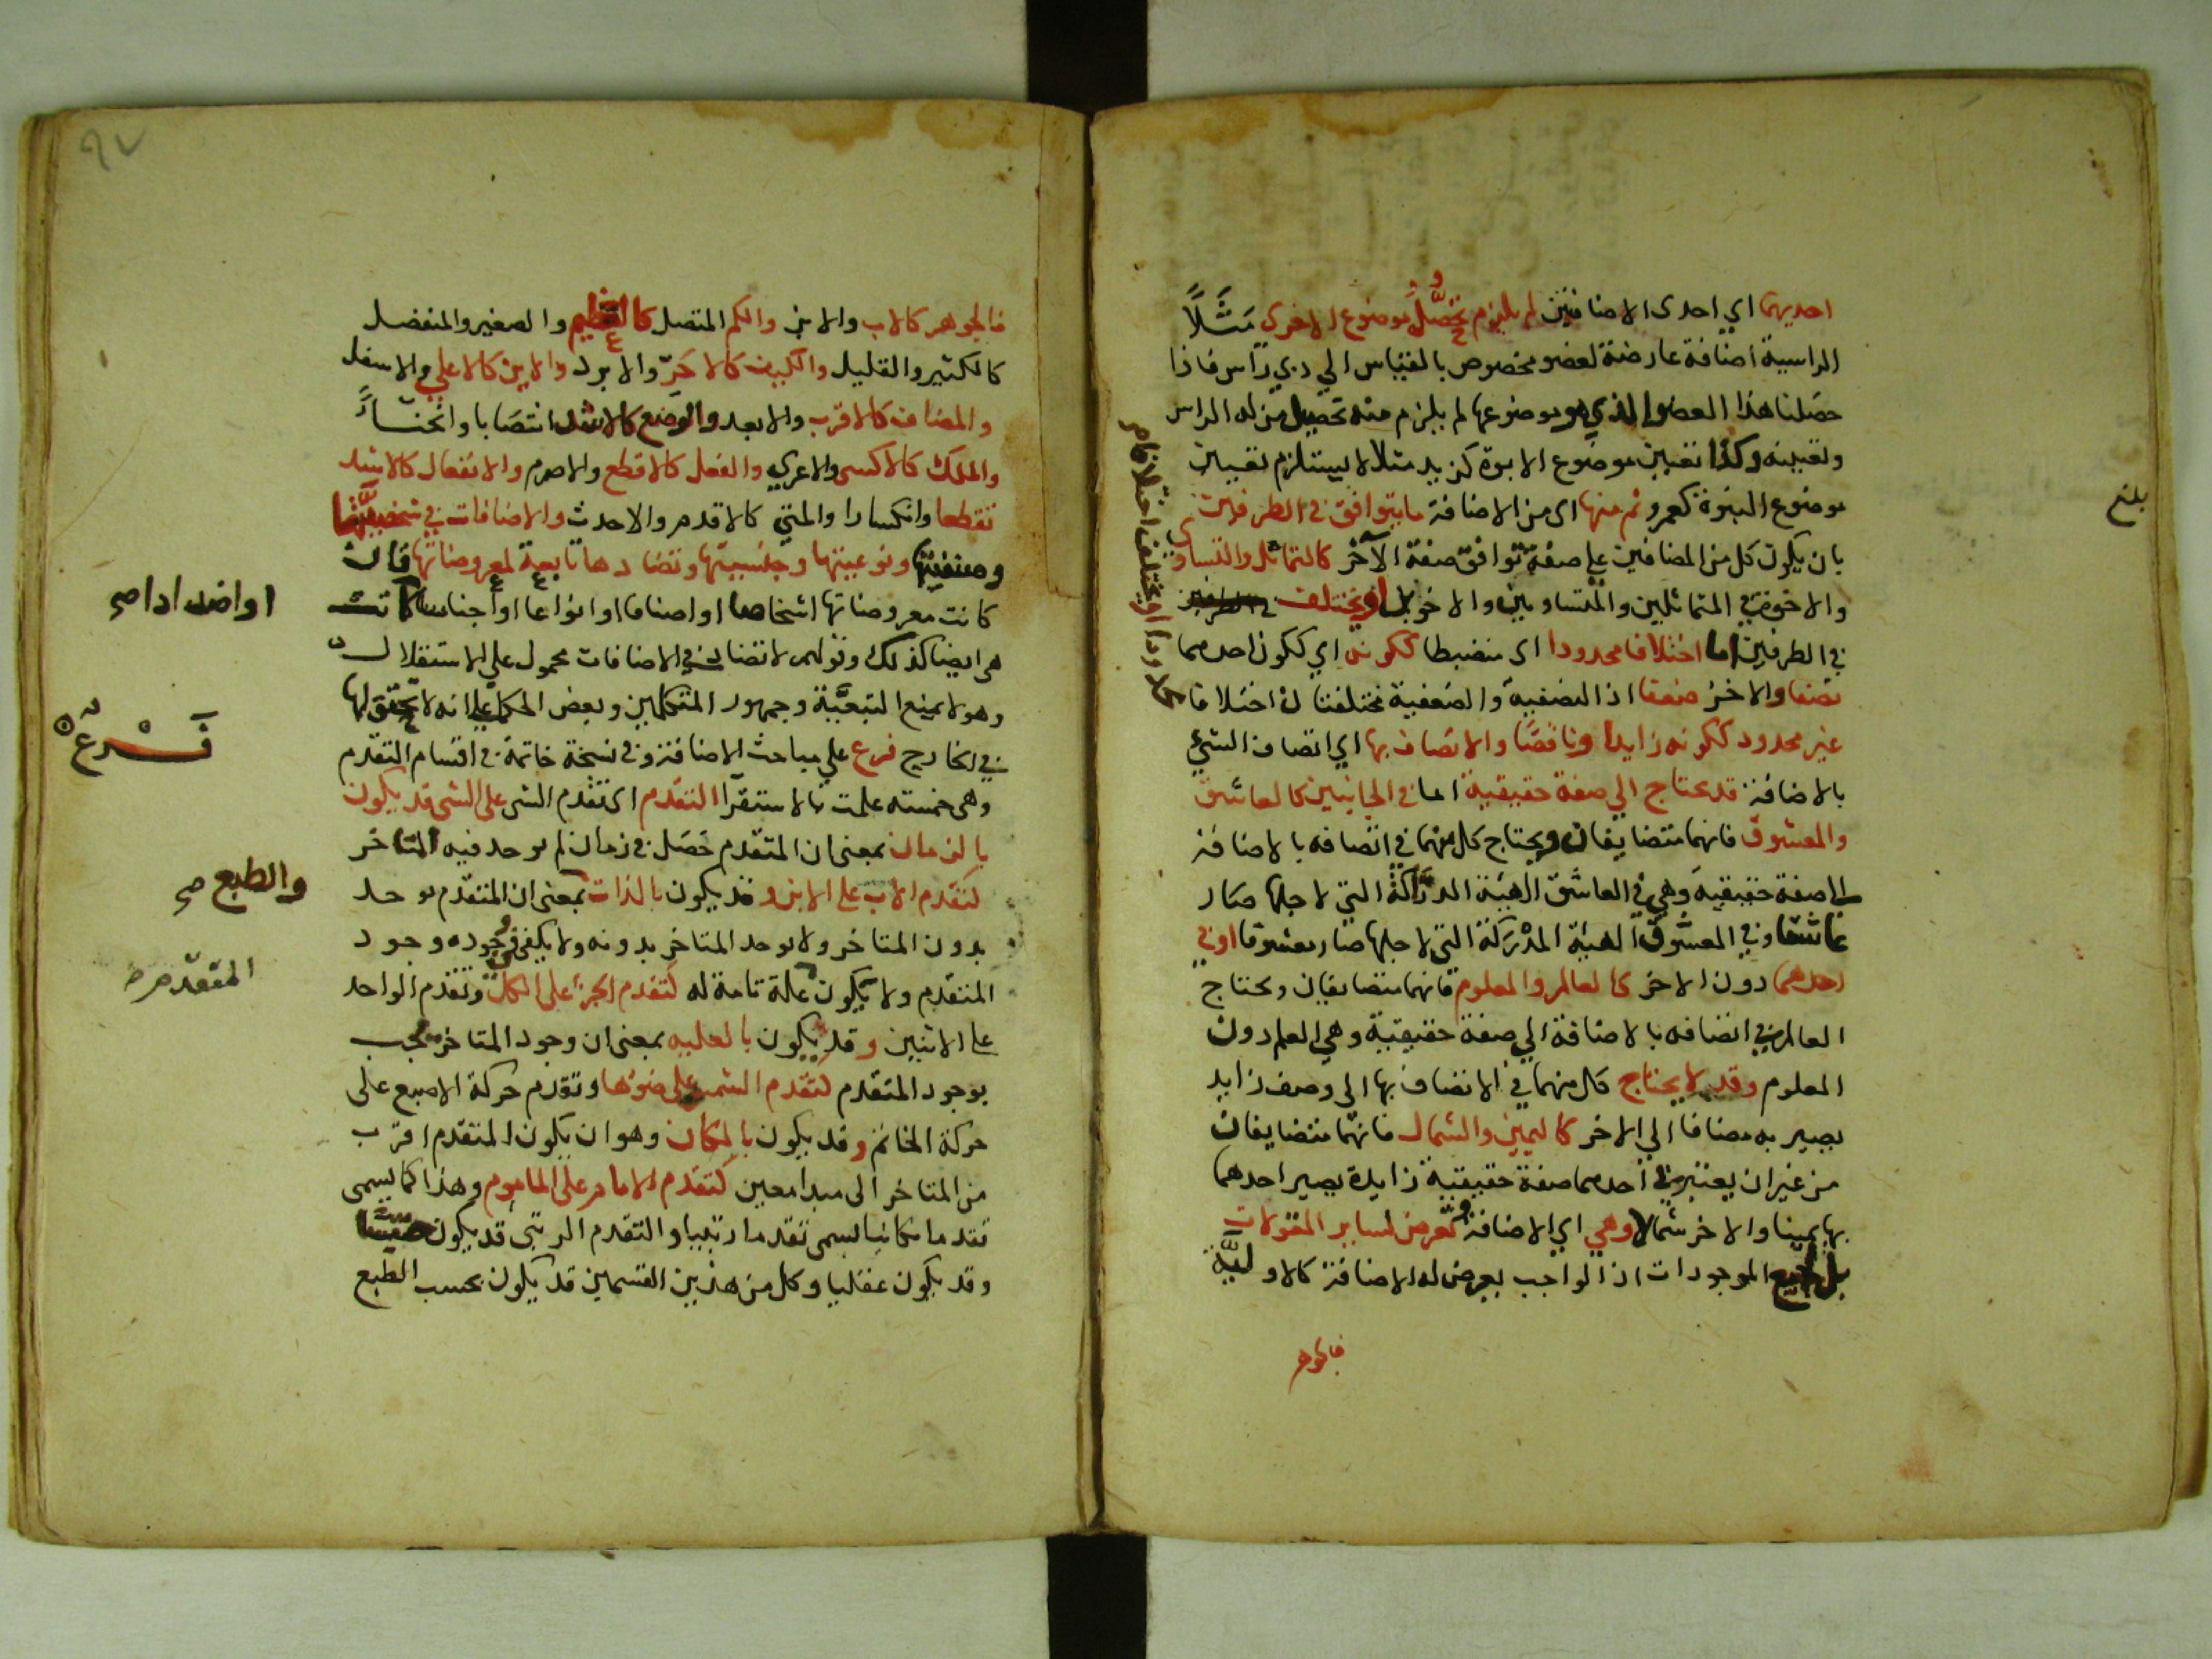 احديهما اي احدى الاضافتين لم يلزم تحصل موضوع الاخرى مثلاً
الراسية اضافة عارضة لعضو مخصوص بالقياس الي ذي راس فاذا
حصلنا هذا العضو الذي هو موضوعها لم يلزم منه تحصيل من له الراس
وتعيينه وكذا تعيين موضوع الابوة كزيد مثلا لا يستلزم تعيين
موضوع البنوة كعمرو ثم منها اى من الاضافة ما يتوافق في الطرفين
بان يكون كل من المضافين علي صفة توافق صفة الآخر كالتماثل والتساوي
والاخوة في المتماثلين والمتساويين والاخوين او يختلف
في الطرفين اما اختلافا محدودا اى منضبطا ككونه اي ككون احدهما
نصفا والاخر ضعفا اذ النصفية والضعفية مختلفتان اختلافا
غير محدود ككونه زايدا وناقصا والاتصاف بها اي اتصاف الشيء
بالاضافة قد يحتاج الي صفة حقيقية اما في الجانبين كالعاشق
والمعشوق فانهما متضايفان ويحتاج كل منهما في اتصافه بالاضافة
الى صفة حقيقية وهي في العاشق الهيئة الدراكة التي لاجلها صار
عاشقا وفي المعشوق الهيئة المدركة التي لاجلها صار معشوقا او في
احدهما دون الاخر كالعالم والمعلوم فانهما متضايفان ويحتاج
العالم في اتصافه بالاضافة الي صفة حقيقية وهي العلم دون
المعلوم وقد لا يحتاج كل منهما في الاتصاف بها الى وصف زايد
يصير به مضافا الي الاخر كاليمين والشمال فانهما متضايفان
من غير ان يعتبر في احدهما صفة حقيقية زايدة يصير احدهما
بها يمينا والاخر شمالا وهي اي الاضافة تعرض لساير المقولات
بل لجميع الموجودات اذ الواجب يعرض له الاضافة كالاولية
فالجوهر
بلغ
فالجوهر كالاب والابن والكم المتصل كالعظيم والصغير والمنفصل
كالكثير والقليل والكيف كالاحر والابرد والاين كالاعلي والاسفل
والمضاف كالاقرب والابعد والوضع كالاشد انتصابا وانحناءً
والملك كالاكسى والاعرى والفعل كالاقطع والاصرم والانفعال كالاشد
تقطعا وانكسارا والمتي كالاقدم والاحدث والاضافات في شخصيتها
وصنفيتها ونوعيتها وجنسيتها وتضادها تابعة لمعروضاتها فان
كانت معروضاتها اشخاصا او اصنافا او انواعا او اجناسا كانت
هى ايضا كذلك وقولهم لا تضاد في الاضافات محمول علي الاستقلال
وهو لا يمنع التبعية وجمهور المتكلمين وبعض الحكما علي انه لا تحقق لها
في الخارج فرع علي مباحث الاضافة وفي نسخة خاتمة في اقسام التقدم
وهى خمسة علمت بالاستقرآ التقدم اى تقدم الشى على الشى قد يكون
بالزمان بمعنى ان المتقدم حصل في زمان لم يوجد فيه المتاخر
كتقدم الاب على الابن وقد يكون بالذات بمعنى ان المتقدم يوجد
بدون المتاخر ولا يوجد المتاخر بدونه ولا يكفي في وجوده وجود
المتقدم ولا يكون علة تامة له كتقدم الجزء على الكل وتقدم الواحد
على الاثنين وقد يكون بالعليه بمعنى ان وجود المتاخر يجب
بوجود المتقدم كتقدم الشمس على ضوئها وتقدم حركة الاصبع على
حركة الخاتم وقد يكون بالمكان وهو ان يكون المتقدم اقرب
من المتاخر الى مبدا معين كتقدم الامام على الماموم وهذا كما يسمى
تقدما مكانيا يسمى تقدما رتبيا والتقدم الرتبى قد يكون حسيا
وقد يكون عقليا وكل من هذين القسمين قد يكون بحسب الطبع
٩٧
فرع
والطبع صح
المتقدم